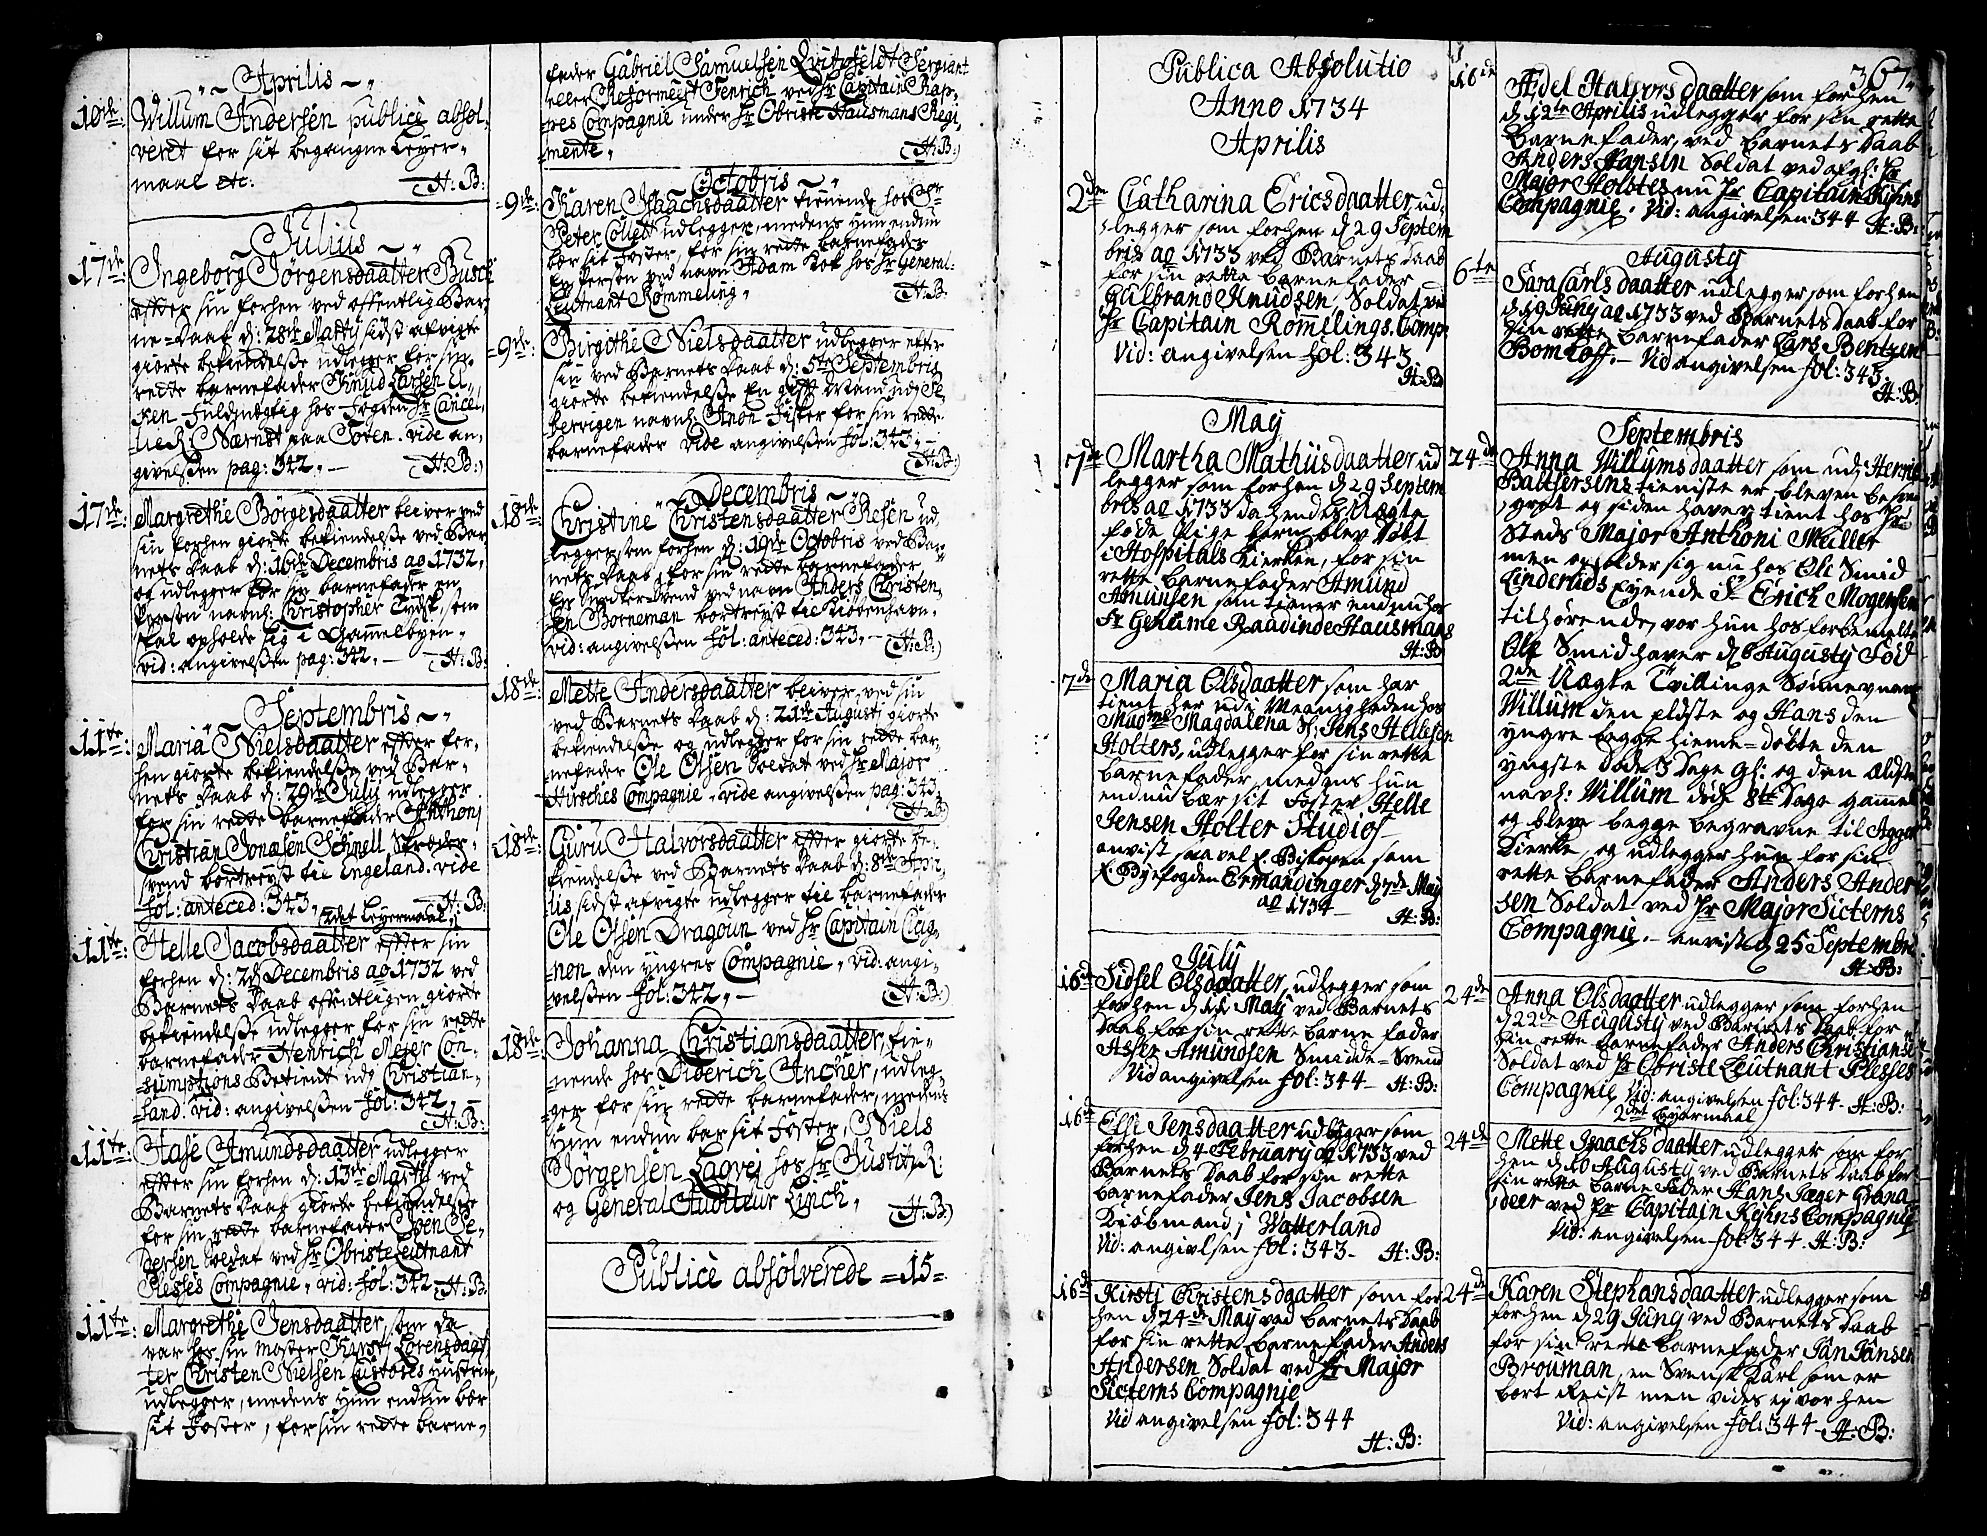 Aprilis
10de: Willum Andersen publicè absol-
veret for sit begangne Leyer-
maal etc: (H:B:
Julius
17de: Ingeborg Jörgensdaatter Busch
efter sin forhen ved offentlig Bar-
ne-Daab d: 28de Martij sidst afvigte
giorte bekiendelsse udlegger for sin
rette barnefader Knud Larsen
fuldmegtig hos Fogden Hr Cancel-
lie
paa Toten. vide an-
givelssen pag: 342. (H:B:)
17de: Margrethe Börgesdaatter bliver ved
sin forhen giorte bekiendelse ved Bar-
nets Daab d: 16de Decembris ao 1732,
og udlegger for sin barnefader en
Person navnl: Christopher Tydsk, som
skal opholde sig i Gammelbyen.
vid: angivelssen pag: 342. (H:B:
Septembris
11te: Maria Nielsdaatter efter for-
hen giorte bekiendelsse ved Bar-
nets Daab d: 29de Julij udlegger
for sin rette barnefader Anthonj
Christian Jonasen Schnell Skreder-
svend bortreyst til Engeland. vide
fol: anteced: 343. (H:B:
2det Leyermaal
11te: Helle Jacobsdaatter efter sin
forhen d: 2de Decembris ao 1732 ved
Barnets Daab offentligen giorte
bekiendelsse udlegger for sin rette
barnefader Henrich Mejer Con-
sumptions Betient udj Christian-
sand. vid: angivelssen fol: 342.
(H:B:
11te: Aase Amundsdaatter udlegger
efter sin forhen d: 13de Martij ved
Barnets Daab giorte bekiendelse
for sin rette barnefader Sven Pe-
dersen Soldat ved Hr Obriste Leutnant
Plesses Compagnie. vid: fol: 342. (H:B:
11te: Margrethe Jensdaatter som da
var hos sin Moster Kirstj Lorensdaat-
ter Christen Nielsen Custodes Hustrue,
udlegger, medens Hun endnu bær
sit Foster, for sin rette barne-
fader Gabriel Samuelsen Qvitzfeldt Sergiant
eller Reformeert Fenrich ved Hr Capitain Rap-
pes Compagnie under Hr Obrist Hausmans Regi-
mente. (H:B:)
Octobris
9de: Karen Isaachsdaatter tienende hos Sr
Peter Collett udlegger, medens Hun endnu
bær sit Foster, for sin rette barnefader
En Person ved navn Adam Kok hos Hr General-
Leutnant Römmeling. (H:B:
9de: Birgithe Nielsdaatter udlegger efter
sin ved Barnets Daab d: 5te Septembris
giorte bekiendelse En gift Mand udj Pe-
bervigen navnl: Anon Fister for sin rette
barnefader vide angivelssen fol: 343.
(H:B:)
Decembris
18de: Christine Christensdaatter Resen ud-
legger som forhen d: 19de Octobris ved Bar-
nets Daab, for sin rette barnefader
En Snedker-Svend ved navn Anders Christen-
sen Borneman bortreyst til Kiöbenhavn.
vid: angivelssen fol: anteced: 343. (H:B:)
18de: Mette Andersdaatter bliver ved sin
ved Barnets Daab d: 21de Augustj giorte
bekiendelsse og udlegger for sin rette bar-
nefader Ole Olsen Soldat ved Hr Major
Hirsches Compagnie. vide angivelssen pag: 343.
(H:B)
18de: Guru Halvorsdaatter efter giorte be-
kiendelsse ved Barnets Daab d: 8de Apri-
lis, sidst afvigte udlegger til barnefader
Ole Olsen Dragoun ved Hr Capitain Cig-
non den yngres Compagnie. vid: angi-
velssen fol: 342. (H:B:)
18de: Johanna Christiansdaatter, tie-
nende hos Diderich Ancher, udleg-
ger for sin rette barnefader, medens
Hun endnu bær sit Foster, Niels
Jörgensen Lagvej hos Hr Justitz R:
og General Auditeur Lynch. (H:B:)
Publicè absolverede =15=
367.
Publica Absolutio
Anno 1734
Aprilis
2den Catharina Ericsdaatter ud-
legger som forhen d 29 Septem
bris ao 1733 ved Barnets Daab
for sin rette barnefader
Gulbrand Knudsen, Soldat ved
Hr Capitain Römelings. Comp:
Vid: angivelsen fol: 343
H:B:
May
7de Martha Mathiisdaatter ud
legger som forhen d 29 Septem
bris ao 1733 da hendes Uægte
föde Pige barn blev Döbt
i Hospitals Kierken, for sin
rette barnefader Amund
Amunsen som tiener endnu hos
Sr Geheime Raadinde Hausmans
H:B
7de Maria Olsdaatter som har
tient her udi Menigheden hos
Madme Magdalena Sl: Jens Hellesen
Holters, udlegger for sin rette
barnefader, medens hun
endnu bær sit Foster Helle
Jensen Holter Studios
anvist saavel f. Biskopen som
f. Byefogden Ermandinger d 7de May
ao 1734 H:B:
July
16de Sidsel Olsdaatter, udlegger som
forhen d May ved Barnets
Daab for sin rette barne fader
Asser Amundsen Smidde-Svend
Vid angivelsen fol: 344 H:B:
16de Else Jensdaatter udlegger som
forhen d 4 February ao 1733 ved
Barnets Daab for sin rette
barnefader Jens Jacobsen
Kiöbmand i Watterland
Vid: angivelsen fol: 343 H:B:
16de Kirsti Christensdaatter som for
hen d 24de May ved barnets Daab
for sin rette barnefader Anders
Andersen Soldat ved Hr Major
Sicterns Compagnie
Vid angivelsen fol: 344
H:B:
16de Ædel Halvorsdaatter som forhen
d 12te Aprilis udlegger for sin rette
Barnefader, ved barnets Daab
Anders Hansen Soldat ved afgl: Hr
Major Holstes nu Hr Capitain Kyhns
Compagnie. Vid: angivelsen 344 H:B:
Augusty
6te Sara Carlsdaatter udlegger som forhen
d 19 Juny ao 1733 ved Barnets Daab for
sin rette barnefader Lars Bentzen
Bomhoff. Vid angivelsen fol: 343
H:B:
Septembris
24de Anna Willumsdaatter som udj
Baltzersens tieniste er bleven be
og siden haver tient hos Hr
Stads Major Anthoni Müller
men opholder sig nu hos Ole Smid
Linderuds Eyende Sr Erich Mogensen
tilhörende, vor hun hos forbemelte
Ole Smid haver d 6 Augusty Fød
2de Uægte Tvillinge Sönner
Willum den eldste og Hans den
yngre begge hieme-döbte den
yngste döde 3 Dage gl: og den ældste
navnl: Willum döde 8te Dage gammel
og bleve begge begravne til Agger
Kierke, og udlegger hun for sin
rette barnefader Anders Ander
sen Soldat ved Hr Major Sicterns
Compagnie. anvist d 25 Septembr
H:B:
24de Anna Olsdaatter udlegger som forhen
d 22de Augusty ved Barnets Daab for
sin rette barnefader Anders Christianse
Soldat ved Hr Obriste Leutnant Plesses
Compagnie Vid: angivelsen fol: 344 H:B:
2det Leyermaal
24de Mette Isaachsdaatter udlegger som for
hen d 16 Augusty ved Barnets Daab for
sin rette barne Fader Hans Jæger Grana
deer ved Hr Capitain Kyhns Compagnie
Vid: angivelsen fol: 344 H:B:
24de Karen Stephansdaatter udlegger som
forhen d 29 Juny ved Barnets Daab
for sin rette barnefader Jan Jansen
Brouman, en Svensk Karl som er
bort Reist men vides ej vor hen
Vid: angivelsen fol: 344 H:B: